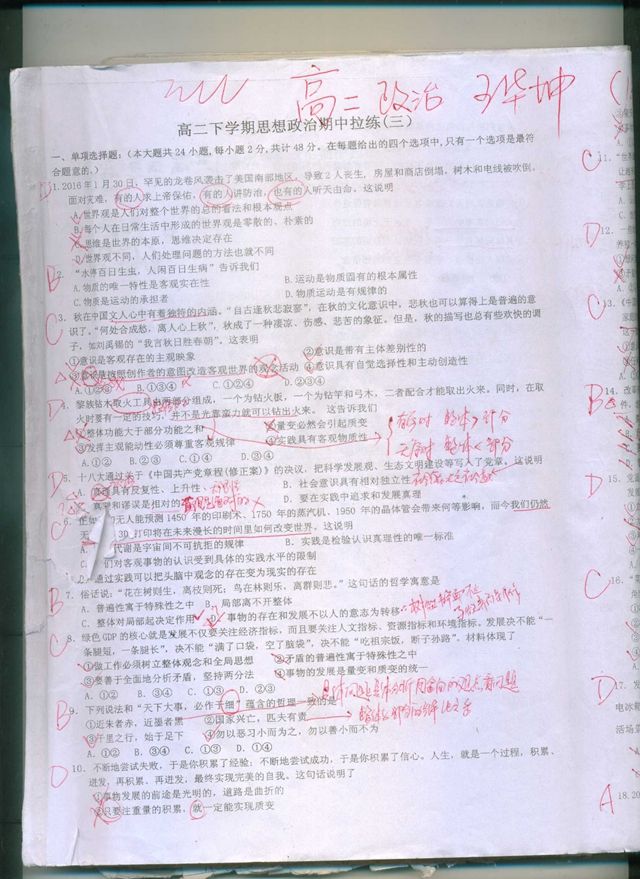 高二 政治
高二下学期思想政治期中拉练(三)
一、单项选择题：(本大题共24小题,每小题2分,共计48分。在每题给出的四个选项中,只有一个选项是最符
合题意的。)
D
1.2016年1月30日，罕见的龙卷风袭击了美国南部地区，导致2人丧生，房屋和商店倒塌，树木和电线被吹倒。
面对灾难，有的人求上帝保佑，有的人讲防治，也有的人听天由命。这说明
A.世界观是人们对整个世界的总的看法和根本观点
B.每个人在日常生活中形成的世界观是零散的、朴素的
C.思维是世界的本原，思维决定存在
D.世界观不同，人们处理问题的方法也就不同
B
2. “水停百日生虫，人闲百日生病”告诉我们
A.物质的唯一特性是客观实在性 B.运动是物质固有的根本属性
C.物质是运动的承担者 D.物质运动是有规律的
C
3. 秋在中国文人心中有着独特的内涵。“自古逢秋悲寂寥”，在秋的文化意识中，悲秋也可以算得上是普遍的意
识了。“何处合成愁，离人心上秋”，秋成了一种凄凉、伤感、悲苦的象征。但是，秋的描写也总有些欢快的调
子，如刘禹锡的“我言秋日胜春朝”。这表明
①意识是客观存在的主观映象 ②意识是带有主体差别性的
③意识是按照创作者的意图改造客观世界的观念活动 ④意识具有自觉选择性和主动创造性
A.①②③ B.①③④ C.①②④ D.②③④
D
4. 黎族钻木取火工具由两部分组成，一个为钻火板，一个为钻竿和弓木，二者配合才能取出火来。同时，在取
火时要有一定的技巧，并不是光靠蛮力就可以钻出火来。这告诉我们
①整体功能大于部分功能之和 ②量变必然会引起质变
③发挥主观能动性必须尊重客观规律 ④实践具有客观物质性
A.①② B.②③ C.①④ D.③④
有序时 整体>部分
无序时 整体<部分
5. 十八大通过关于《中国共产党章程(修正案)》的决议，把科学发展观、生态文明建设等写入了党章。这说明
A. 真理具有反复性、上升性、 B. 社会意识具有相对独立性
C. 真理和谬误是相对的 D. 要在实践中追求和发展真理
6. 正如无人能预测1450年的印刷术、1750年的蒸汽机、1950年的晶体管会带来何等影响，而今我们仍然
3D打印将在未来漫长的时间里如何改变世界。这说明
代谢是宇宙间不可抗拒的规律 B. 实践是检验认识真理性的唯一标准
C. 人们对客观事物的认识受到具体的实践水平的限制
D. 通过实践可以把头脑中观念的存在变为现实的存在
B
7. 俗话说：“花在树则生，离枝则死；鸟在林则乐，离群则悲。”这句话的哲学寓意是
A. 普遍性寓于特殊性之中 B. 局部离不开整体
C. 整体对局部起决定作用 D. 事物的存在和发展不以人的意志为转移
C
8. 绿色GDP的核心就是发展不仅要关注经济指标，而且要关注人文指标、资源指标和环境指标。发展决不能“一
条腿短，一条腿长”，决不能“满了口袋，空了脑袋”，决不能“吃祖宗饭，断子孙路”。材料体现了
①做工作必须树立整体观念和全局思想 ②矛盾的普遍性寓于特殊性之中
③要善于全面地分析矛盾，坚持两分法 ④事物的发展是量变和质变的统一
A. ①② B. ③④ C. ①③ D. ②③
B
9. 下列说法和“天下大事，必作于细”蕴含的哲理一致的是
①近朱者赤，近墨者黑 ②国家兴亡，匹夫有责
③千里之行，始于足下 ④勿以恶习小而为之，勿以善小而不为
A. ①② B. ③④ C. ①③ D. ②④
D
10. 不断地尝试失败，于是你积累了经验；不断地尝试成功，于是你积累了信心。人生，就是一个过程，积累、
迸发，再积累、再迸发，最终实现完美的自我。这句话说明了
①事物发展的前途是光明的，道路是曲折的
②只要注重量的积累，就一定能实现质变
C
11. “世
D
12.
C
13.
B
14. 改革
D
15. 党
C
16.
D
17. 发
电冰箱
A
18.20